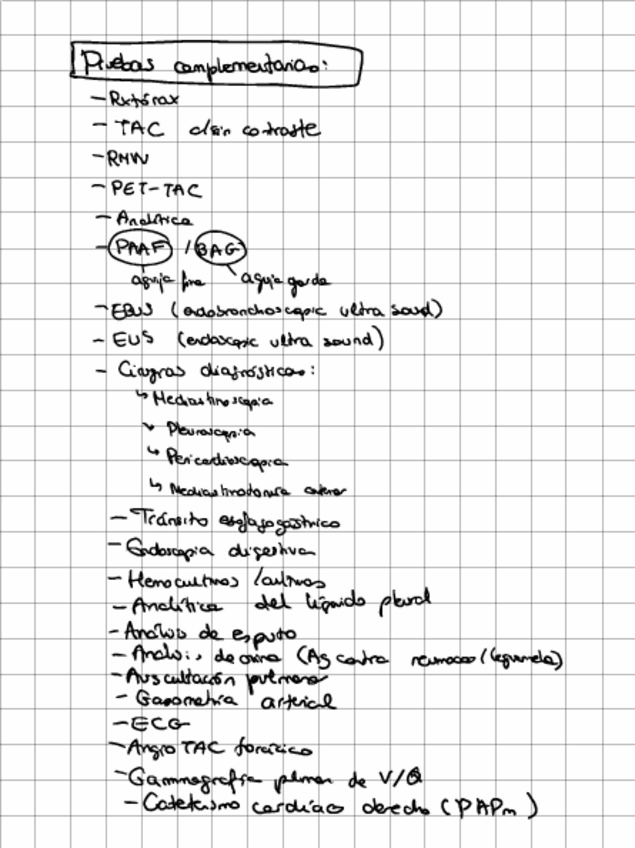 Pruebas complementarias:
- Rx tórax
- TAC c/sin contraste
- RMN
- PET-TAC
- Analítica
- PAAF / BAG
aguja fina aguja gorda
- EBUS (endobronchoscopic ultra sound)
- EUS (endoscopic ultra sound)
- Cirugías diagnósticas:
↳ Mediastinoscopia
↳ Pleuroscopia
↳ Pericardioscopia
↳ Mediastinotomía anterior
- Tránsito esofagogástrico
- Endoscopia digestiva
- Hemocultivos / cultivos
- Analítica del líquido pleural
- Análisis de esputo
- Análisis de orina (Ag contra neumococo / legionela)
- Auscultación pulmonar
- Gasometría arterial
- ECG
- Angio TAC torácico
- Gammagrafía pulmonar de V/Q
- Cateterismo cardíaco derecho (PAPm)